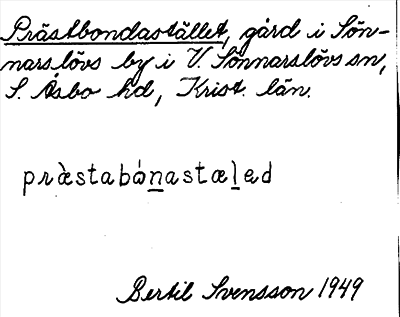 Prästbondastället, gård i Sön-
narslövs by i V. Sönnarslövs sn,
S. Åsbo hd, Krist. län.
præ̀stabón̲astæl̲ed
Bertil Svensson 1949